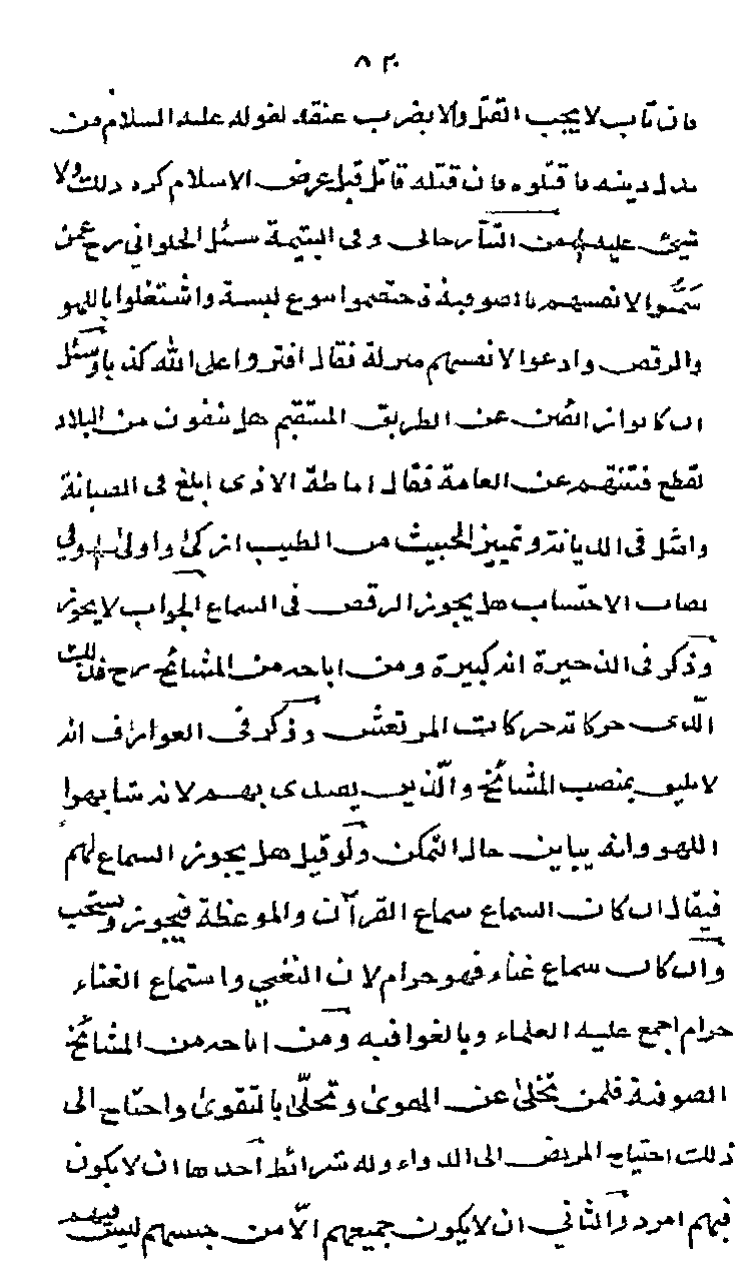 ٨٣٠
فان تاب لا يجب القتل والا يضرب عنقه لقوله عليه السلام من
بدل دينه فاقتلوه فان قتله قاتل قبل عرض الاسلام كره ذلك ولا
شيئ عليه من التتارخانى وفى اليتيمة سئل الحلواني رح عمن
سمّوا لانفسهم بالصوفية فاختصوا بنوع لبسة واشتغلوا باللهو
والرقص وادعوا لانفسهم منزلة فقال افتروا على الله كذبا وسئل
ان كانوا زائغين عن الطريق المستقيم هل ينفون من البلاد
لقطع فتنتهم عن العامة فقال اماطة الاذى ابلغ فى الصيانة
وامثل فى الديانة وتمييز الخبيث من الطيب ازكى واولى وفي
نصاب الاحتساب هل يجوز الرقص فى السماع الجواب لا يجوز
وذكر فى الذخيرة انه كبيرة ومن اباحه من المشائخ رح فذلك
الّذى حركاته حركات المرتعش وذكر فى العوارف انه
لا يليق بمنصب المشائخ والّذين يقتدى بهم لانه شابهوا
اللهو وانه يباين حال التمكن ولو قيل هل يجوز السماع لهم
فيقال ان كان السماع سماع القرآن والموعظة فيجوز ويستحب
وان كان سماع غناء فهو حرام لان التغني واستماع الغناء
حرام اجمع عليه العلماء وبالغوا فيه ومن اباحه من المشائخ
الصوفية فلمن تخلىٰ عن الهوىٰ وتحلّىٰ بالتقوىٰ واحتاج الى
ذلك احتياج المريض الى الدواء وله شرائط احدها ان لا يكون
فيهم امرد والثاني ان لا يكون جميعهم الّا من جنسهم ليس فيهم